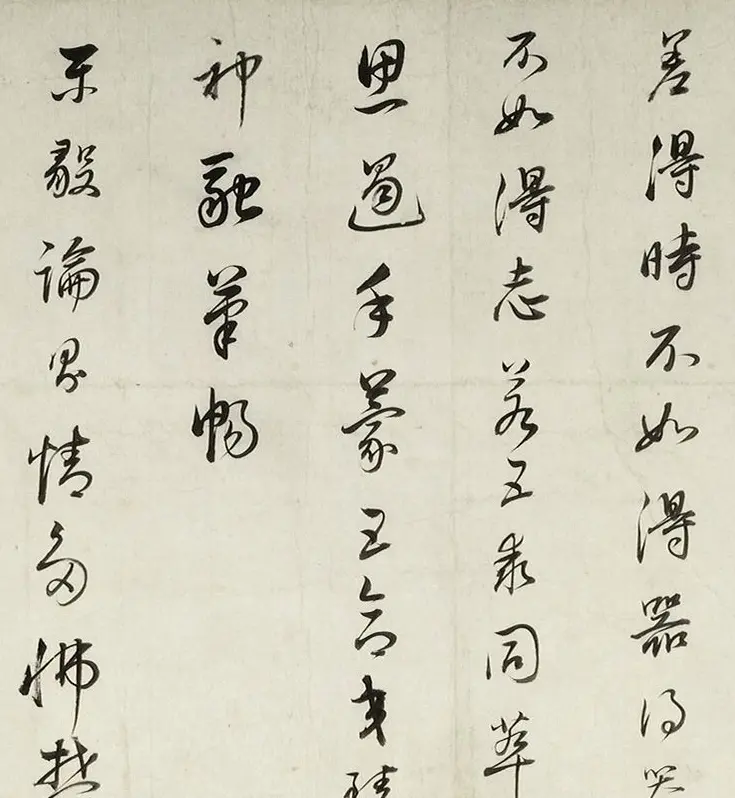 差得時不如得器得器
不如得志若五乖同萃
思遏手蒙五合交臻
神融筆暢
樂毅論情多怫鬱